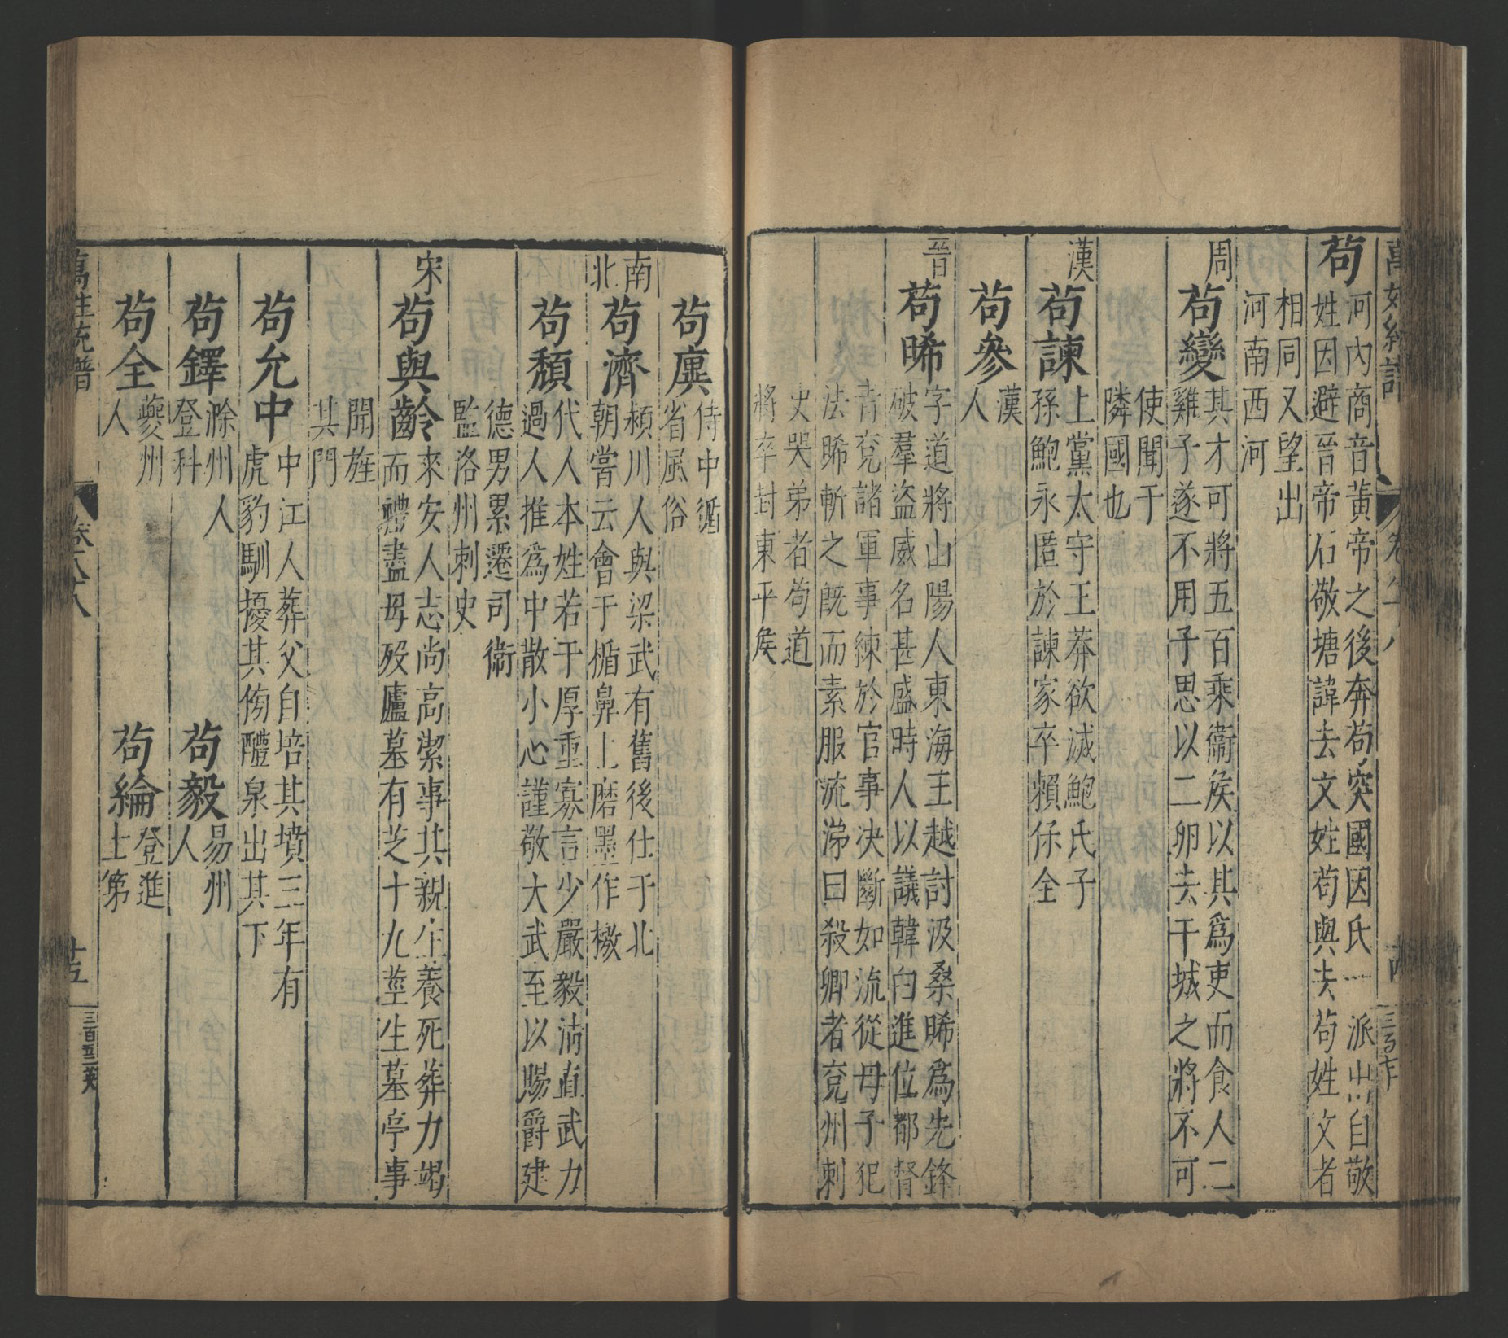 萬姓統譜
苟
河內商音黃帝之後奔苟突國因氏一派出自敬
姓因避晉帝石敬塘諱去文姓苟與去苟姓文者
相同又望出
河南西河
周
苟變
其才可將五百乘衞侯以其為吏而食人二
雞子遂不用子思以二卵去干城之將不可
使聞于
隣國也
漢
苟諫
上黨太守王莽欲滅鮑氏子
孫鮑永匿於諫家卒賴保全
苟參
漢
人
晉
苟晞
字道將山陽人東海王越討汲桑晞爲先鋒
破羣盜威名甚盛時人以議韓白進位都督
青兗諸軍事練於官事决斷如流從母子犯
法晞斬之既而素服流涕曰殺卿者兗州刺
史哭弟者苟道
將卒封東平侯
苟廙
侍中循
省風俗
南
北
苟濟
頴川人與梁武有舊後仕于北
朝嘗云會于楯鼻上磨墨作檄
苟頹
代人本姓若干厚重寡言少嚴毅清直武力
過人推爲中散小心謹敬大武至以賜爵建
德男累遷司衞
監洛州刺史
宋
苟與齡
來安人志尚高潔事其親生養死葬力竭
而禮盡母歿廬墓有芝十九莖生墓亭事
聞旌
其門
苟允中
中江人葬父自培其墳三年有
虎豹馴擾其傍醴泉出其下
苟鐸
滁州人
登科
苟毅
易州
人
苟全
夔州
人
苟綸
登進
士第
萬姓統譜
卷八十八
十五